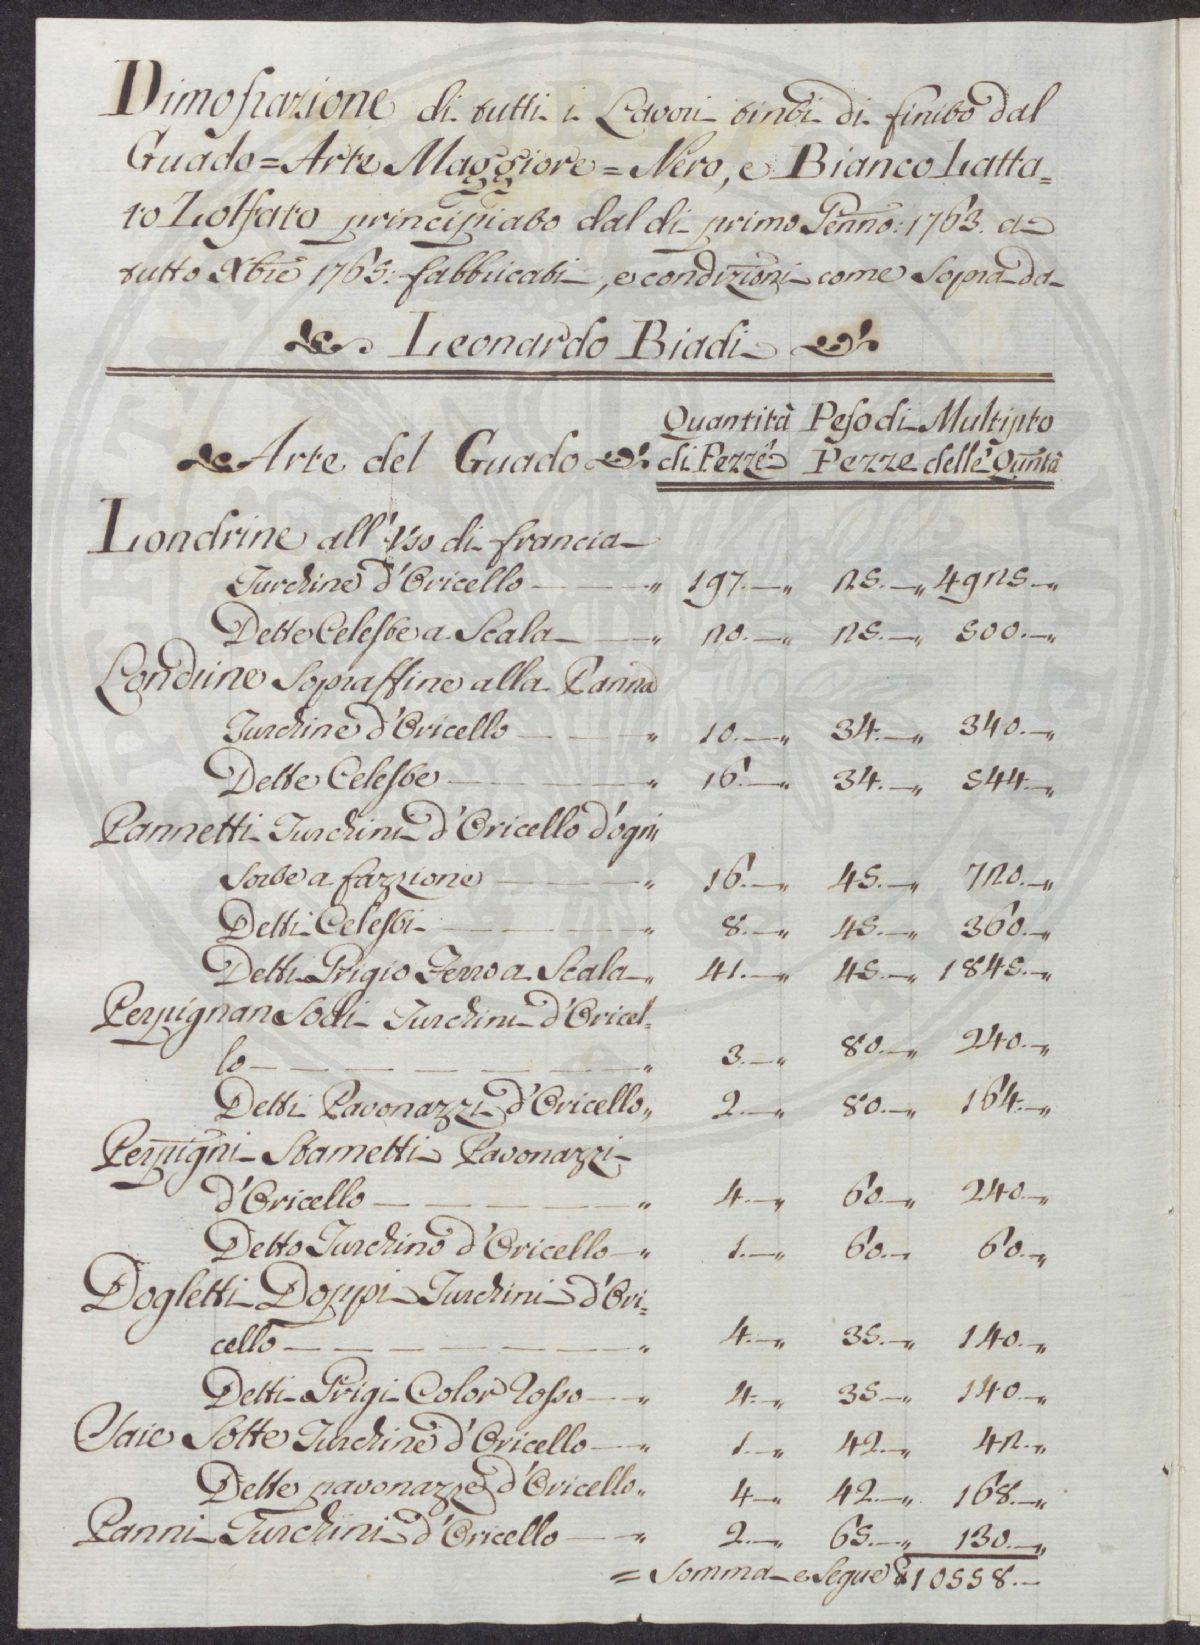 Dimostrazione di tutti i Lavori tinti di finito dal
Guado = Arte Maggiore = Nero, e Bianco Latta=
to Zolfato principiato dal di primo Genno: 1763. a
tutto Xbre 1765: fabbricati, e condizioni come Sopra da
Leonardo Biadi
Quantità Peso di Multipto
Arte del Guado di Pezze Pezze delle Quntà
Londrine all'Uso di francia
Turchine d'Oricello — " 197.—" 25.—" 4925.—"
Dette Celeste a Scala — " 20.—" 25.—" 500.—"
Londrine Sopraffine alla Panna
Turchine d'Oricello — " 10.—" 34.—" 340.—"
Dette Celeste — " 16.—" 34.—" 544.—"
Pannetti Turchini d'Oricello d'ogni
Sorte a fazzione — " 16.—" 45.—" 720.—"
Detti Celesti — " 8.—" 45.—" 360.—"
Detti Grigio Ferro a Scala " 41.—" 45.—" 1845.—"
Perpignan Sodi Turchini d'Oricel=
lo — " 3.—" 80.—" 240.—"
Detti Pavonazzi d'Oricello " 2.—" 80.—" 164.—"
Perpigni Stametti Pavonazzi
d'Oricello — " 4.—" 60.—" 240.—"
Detto Turchino d'Oricello — " 1.—" 60.— 60.—"
Dogletti Doppi Turchini d'Ori=
cello — " 4.—" 35.—" 140.—"
Detti Grigi Color Rosso — " 4.—" 35—" 140.—"
Saie Sotte Turchine d'Oricello — " 1.—" 42—" 42.—"
Dette pavonazze d'Oricello " 4—" 42.—" 168.—"
Panni Turchini d'Oricello — " 2.—" 65.—" 130.—"
= Somma e Segue 10558.—